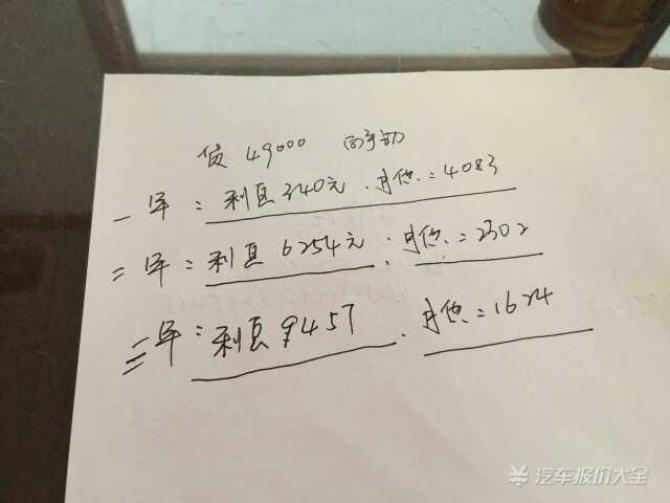 贷 49000
一年：利息340元．月供：4083
二年：利息6254元；月供：2302
三年：利息9457．月供：1624
汽车报价大全